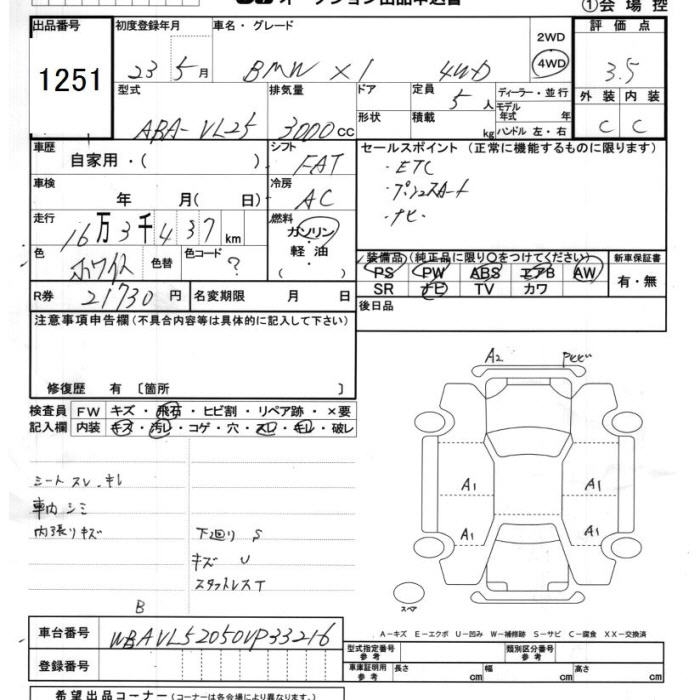 オークション出品申込書
①会場控
出品番号
1251
初度登録年月
23 5月
車名・グレード
BMW X1 4WD
2WD
4WD
評価点
3.5
外装 内装
C C
型式
ABA-VL25
排気量
3000cc
ドア
形状
定員
5人
積載
kg
ディーラー・並行
モデル年式 年
ハンドル 左・右
車歴
自家用・( )
シフト
FAT
セールスポイント (正常に機能するものに限ります)
・ETC
・プッシュスタート
・ナビ・
車検
年 月( 日)
冷房
AC
走行
16万3千437km
燃料
ガソリン・軽油
・( )
色
ホワイト
色替
色コード
?
装備品(純正品に限り○をつけてください)
PS PW ABS エアB AW
SR ナビ TV カワ
新車保証書
有・無
R券
21730円
名変期限 月 日
後日品
注意事項申告欄(不具合内容等は具体的に記入して下さい)
修復歴 有 〔箇所 〕
検査員記入欄
FW キズ・飛石・ヒビ割・リペア跡・×要
内装 キズ・汚レ・コゲ・穴・スレ・キレ・破レ
シート スレ・キレ
車内 シミ
内張りキズ
下廻り S
キズ U
スタットレスT
B
A2
P ヒビ
A1 A1
A1 A1
スペア
A-キズ E-エクボ U-凹み W-補修跡 S-サビ C-腐食 XX-交換済
車台番号
WBAVL52050VP33216
登録番号
型式指定番号 参考
類別区分番号 参考
車庫証明用 参考
長さ cm 幅 cm 高さ cm
希望出品コーナー(コーナーは各会場により異なります。)